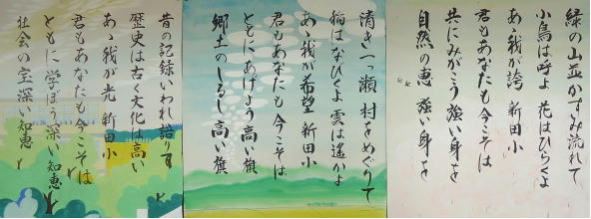 緑の山並かすみ流れて
小鳥は呼よ 花はひらくよ
あゝ我が誇 新田小
君もあなたも今こそは
共にみがこう強い身を
自然の恵 強い身を
清き一つ瀬 村をめぐりて
稲はなびくよ 雲は遙かよ
あゝ我が希望 新田小
君もあなたも今こそは
ともにあげよう高い旗
郷土のしるし 高い旗
昔の記録いわれ語り
歴史は古く文化は高い
あゝ我が光 新田小
君もあなたも今こそは
ともに学ぼう深い知恵
社会の宝 深い知恵